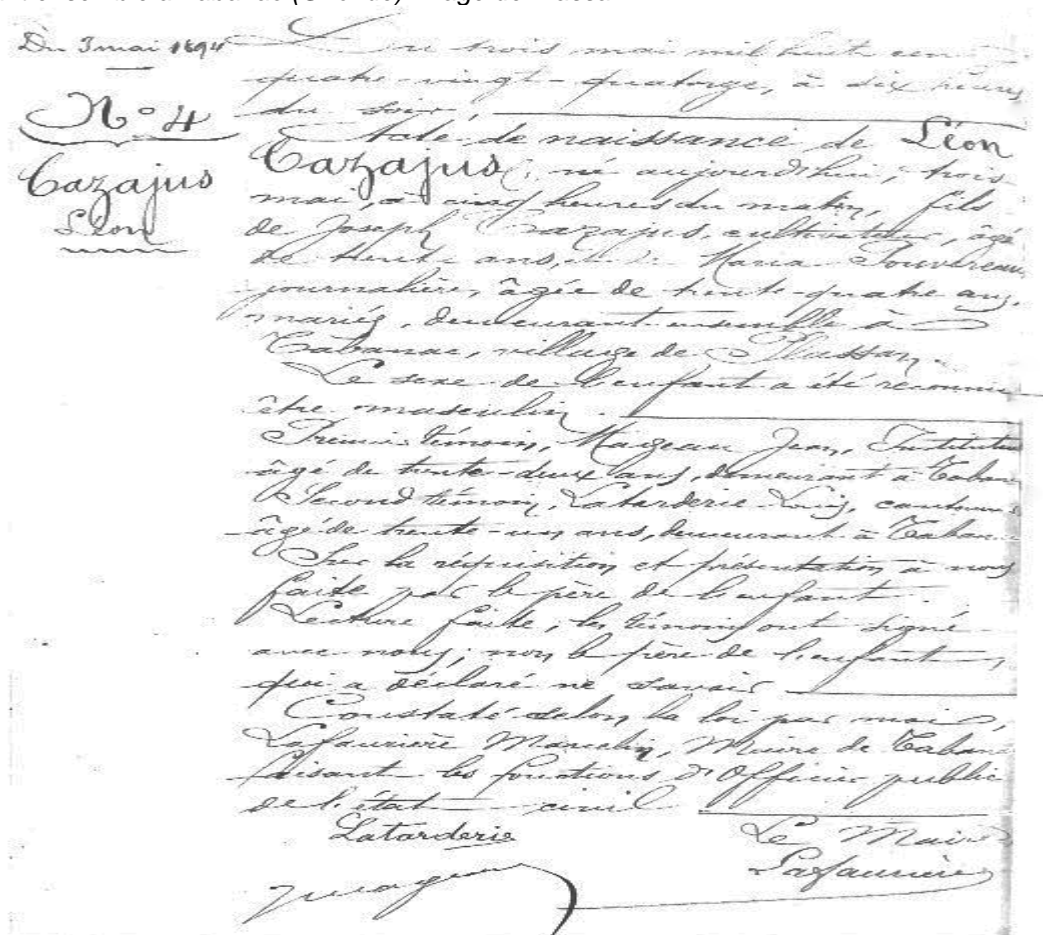 Du 3 mai 1894
N° 4
Cazajus
Léon
Du trois mai mil huit cent
quatre-vingt-quatorze, à six heures
du soir,
Acte de naissance de Léon
Cazajus, né aujourd'hui, trois
mai, à cinq heures du matin, fils
de Joseph Cazajus, cultivateur, âgé
de trente ans, et de Maria
journalière, âgée de trente-quatre ans,
mariés, demeurant ensemble à
Tabanac, village de Plassan.
Le sexe de l'enfant a été reconnu
être masculin.
Premier témoin, Jean, Instituteur
âgé de trente-deux ans, demeurant à Taban
Second témoin, Latarderie Louis, cantonn
âgé de trente-un ans, demeurant à Taban
Sur la réquisition et présentation à nous
faite par le père de l'enfant.
Lecture faite, les témoins ont signé
avec nous; non le père de l'enfant,
qui a déclaré ne savoir
Constaté selon la loi par moi,
Lafaurière Marcelin, Maire de Tabana
faisant les fonctions d'Officier public
de l'état civil
Latarderie
Le Maire
Lafaurière